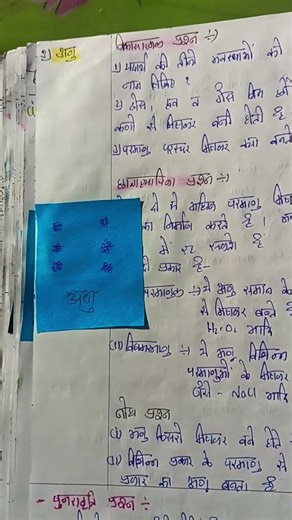 2) अणु
विकासात्मक प्रश्न ÷
1) पदार्थ की तीनों अवस्थाओं को
नाम लिखिए ?
2) ठोस, द्रव व गैस किन
कणों से मिलकर बनी होती है
3) परमाणु परस्पर मिलकर क्या बनाते
प्रश्न ÷
दो से अधिक परमाणु
का निर्माण करते है।
में रह सकते है
प्रकार है-
÷ ये अणु समान
से मिलकर बनते है
H₂, O₂ आदि
(ii) विषमपरमाणु ÷ ये अणु विभिन्न
परमाणुओं के मिलकर
जैसे - NaCl आदि
अणु
बोध प्रश्न
(i) अणु किससे मिलकर बने होते
(ii) विभिन्न प्रकार के परमाणु से
प्रकार का अणु बनता है
- पुनरावृति प्रश्न ÷